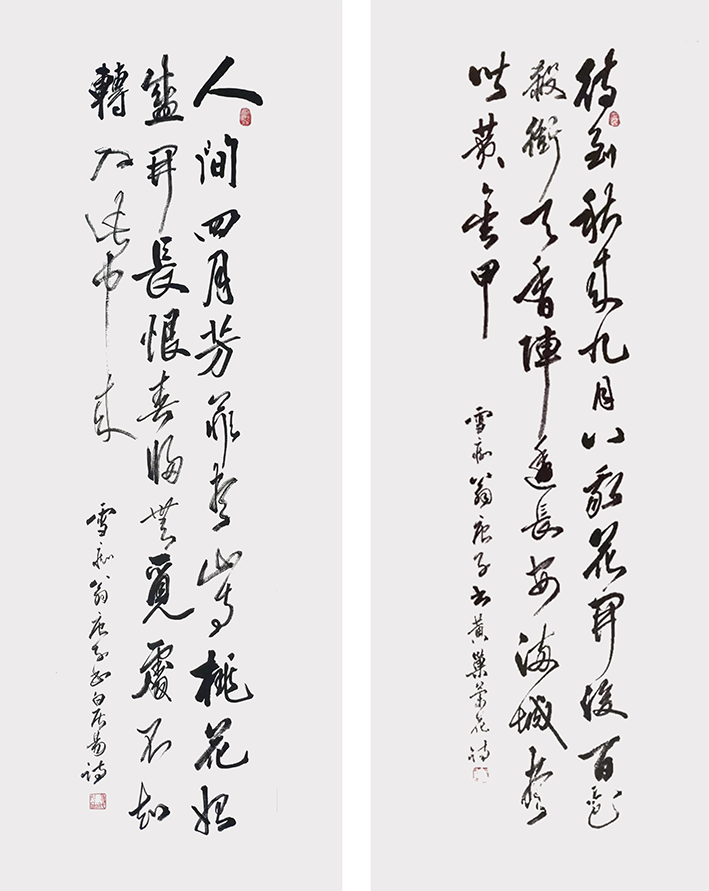 待到秋來九月八我花開後百花
殺衝天香陣透長安滿城盡
帶黃金甲
雪痴翁庚子书黃巢菊花詩
人間四月芳菲盡山寺桃花始
盛開長恨春歸無覓處不知
轉入此中來
雪痴翁庚子书白居易詩